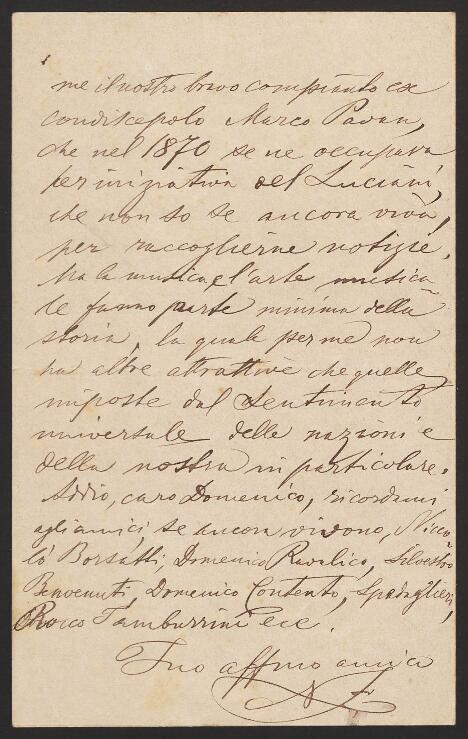 me il nostro bravo compianto ex
condiscepolo Marco Pavan,
che nel 1870 se ne occupava
per iniziativa del Luciani,
che non so se ancora viva,
per raccoglierne notizie.
Ma la musica e l'arte musica
le fanno parte minima della
storia, la quale per me non
ha altre attrattive che quelle
imposte dal sentimento
universale delle nazioni e
della nostra in particolare.
Addio, caro Domenico, ricordami
agli amici, se ancora vivono, Nicco
lò Borsatti, Domenico Ravalico, Silvestro
Benvenuti, Domenico Contento, Spadaglieri,
Rocco Tamburrini ecc.
Tuo affmo amico